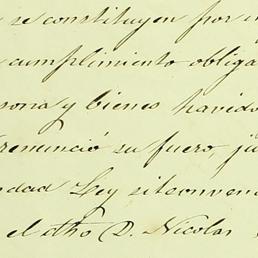 se constituyen por
cumplimiento obliga
sona y bienes havido
renunció su fuero, ju
dad Ley sitconven
el dho D. Nicolas